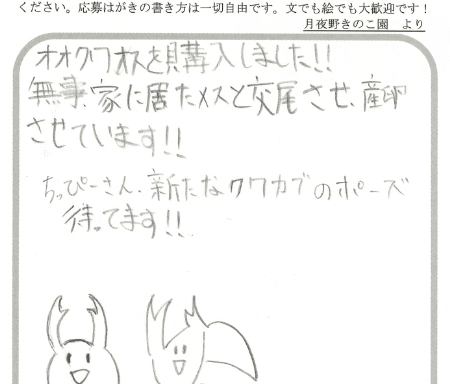 ください。応募はがきの書き方は一切自由です。文でも絵でも大歓迎です!
月夜野きのこ園 より
オオクワオスを購入しました!!
無事、家に居たメスと交尾させ、産卵
させています!!
ちっぴーさん、新たなクワカブのポーズ
待ってます!!